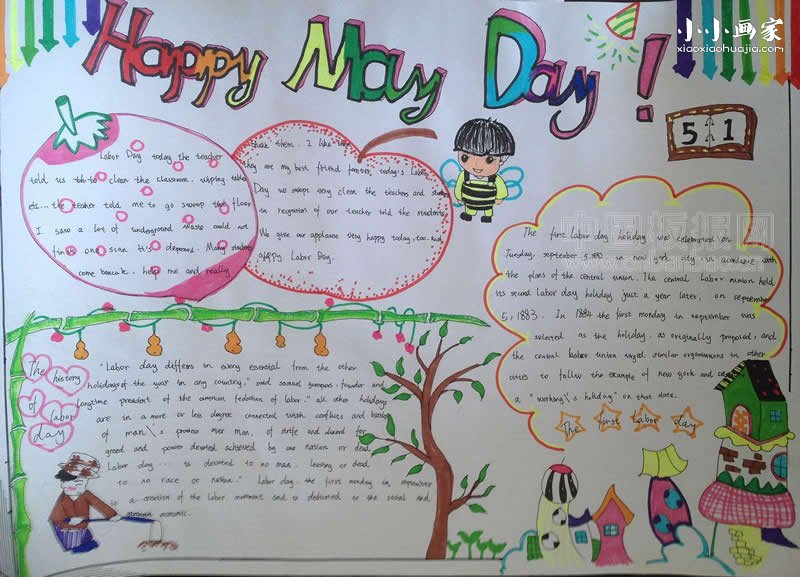 Happy May Day !
小小画家
xiaoxiaohuajia.com
5 1
Labor Day today the teacher
told us to clean the classroom. wiping table
etc... the teacher told me to go sweep the floor
I saw a lot of underground waste could not
one scan it's depressed. Many students
come help me and really
thank them. I like
they are my best friend forever. today's Labor
Day we swept very clean the teachers and
in recognition of our teacher told the students
We give our applause very happy today.
Labor Day.
The first labor day holiday was celebrated on
Tuesday, september 5, 1882 in new york city, in accordance with
the plans of the central union. The central Labor union held
its second Labor day holiday just a year later, on september
5, 1883. In 1884 the first monday in september was
selected as the holiday, as originally proposed, and
the central union urged similar organizations in other
cities to follow the example of new york and
a "working\'s holiday" on that date.
The first labor day
中国板报网
The history
of labor
day
"Labor day differs in every essential from the other
holidays of the year in any country," said samuel gompers, founder and
longtime president of the american federation of labor." all other holidays
are in a more or less degree connected with conflicts and battles
of man\'s prowess over man, of strife and discord for
greed and power, of glories achieved by one nation or
Labor day... is devoted to no man, living or dead,
to no race or nation." Labor day, the first monday in september
is a creation of the labor movement and is dedicated to the social and
economic.